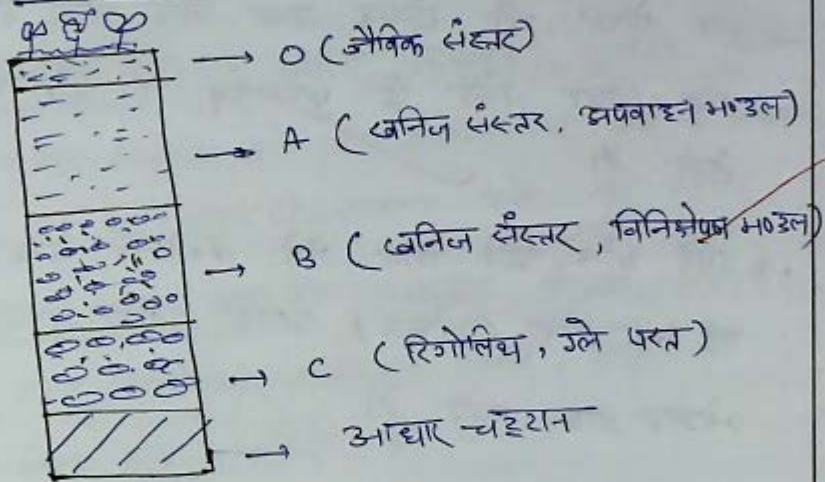 → O (जैविक संस्तर)
→ A (खनिज संस्तर, अपवाहन मण्डल)
→ B (खनिज संस्तर, विनिक्षेपण मण्डल)
→ C (रिगोलिथ, ग्ले परत)
→ आधार चट्टान